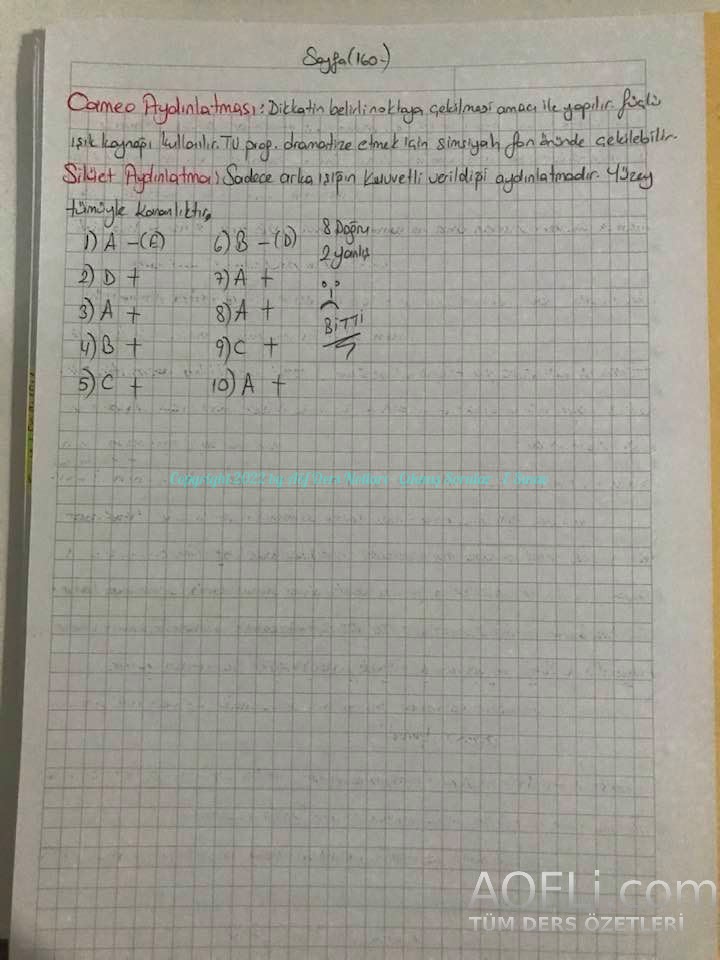 Sayfa (160-)
Cameo Aydınlatması: Dikkatin belirli noktaya çekilmesi amacı ile yapılır. Güçlü
ışık kaynağı kullanılır. TV prog. dramatize etmek için simsiyah fon önünde çekilebilir.
Silüet Aydınlatma: Sadece arka ışığın kuvvetli verildiği aydınlatmadır. Yüzey
tümüyle karanlıktır.
1) A -(E) 6) B -(D) 8 Doğru
2 yanlış
2) D + 7) A +
3) A + 8) A +
BİTTİ
4) B + 9) C +
5) C + 10) A +
Copyright
AOFLi.com
TÜM DERS ÖZETLERİ